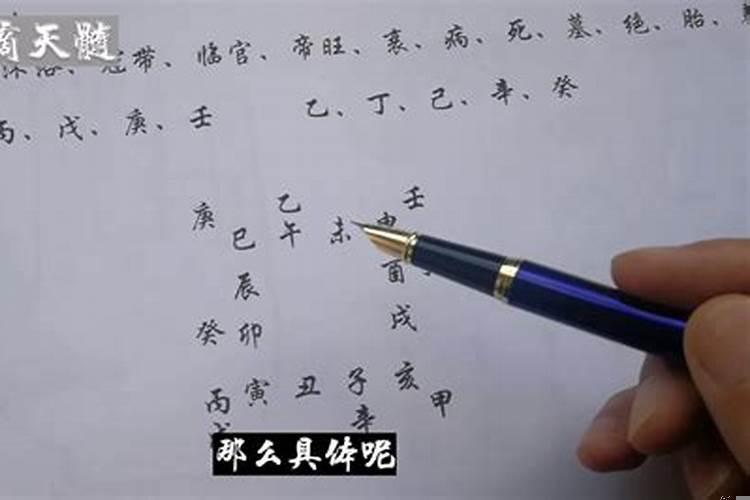 滴天髓
沐浴、冠带、临官、帝旺、衰、病、死、墓、绝、胎、
丙、戊、庚、壬 乙、丁、己、辛、癸
庚 乙 壬
巳 午 未 申
辰 酉
癸 卯 戌
丙 寅 丑 子 亥 甲
戊 辛
那么具体呢